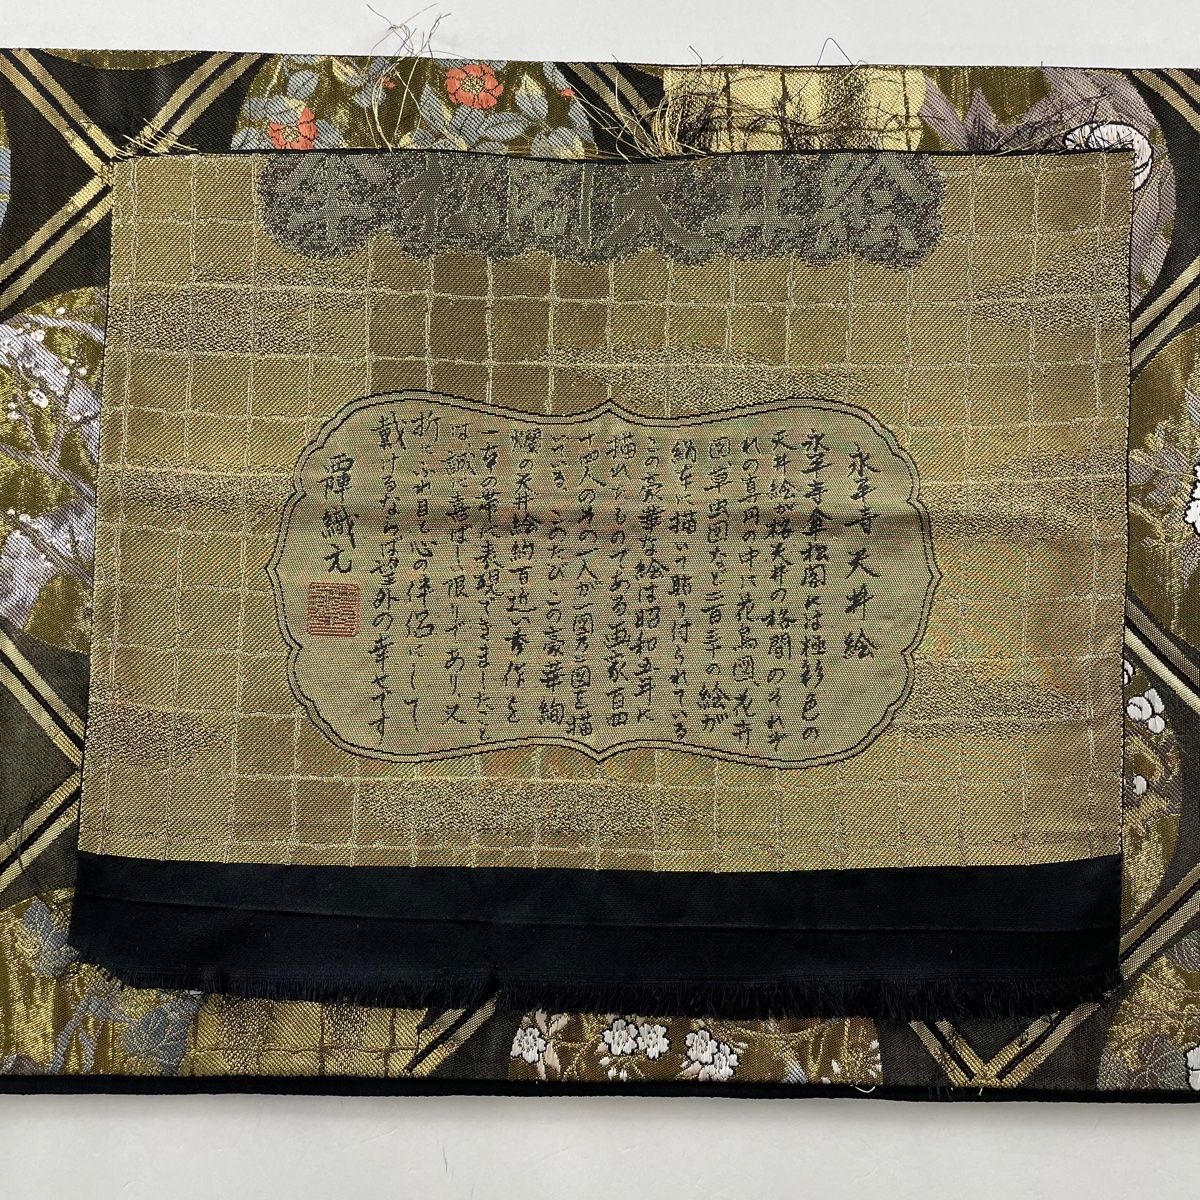 傘松閣天井絵
永平寺天井絵
永平寺傘松閣には極彩色の
天井絵が格天井の格間のそれぞ
れの真円の中に花鳥図、花卉
図、草虫図など二百三十の絵が
絹本に描いて貼り付けられている
この豪華な絵は昭和五年に
描れたものである画家百四
十四人のその一人が一図乃二図を描
いている。このたびこの豪華絢
爛の天井絵約百近い秀作を
一本の帯に表現できましたこと
は誠に喜ばしい限りであり、又
折にふれ目と心の伴侶にして
戴けるならば望外の幸せです
織元